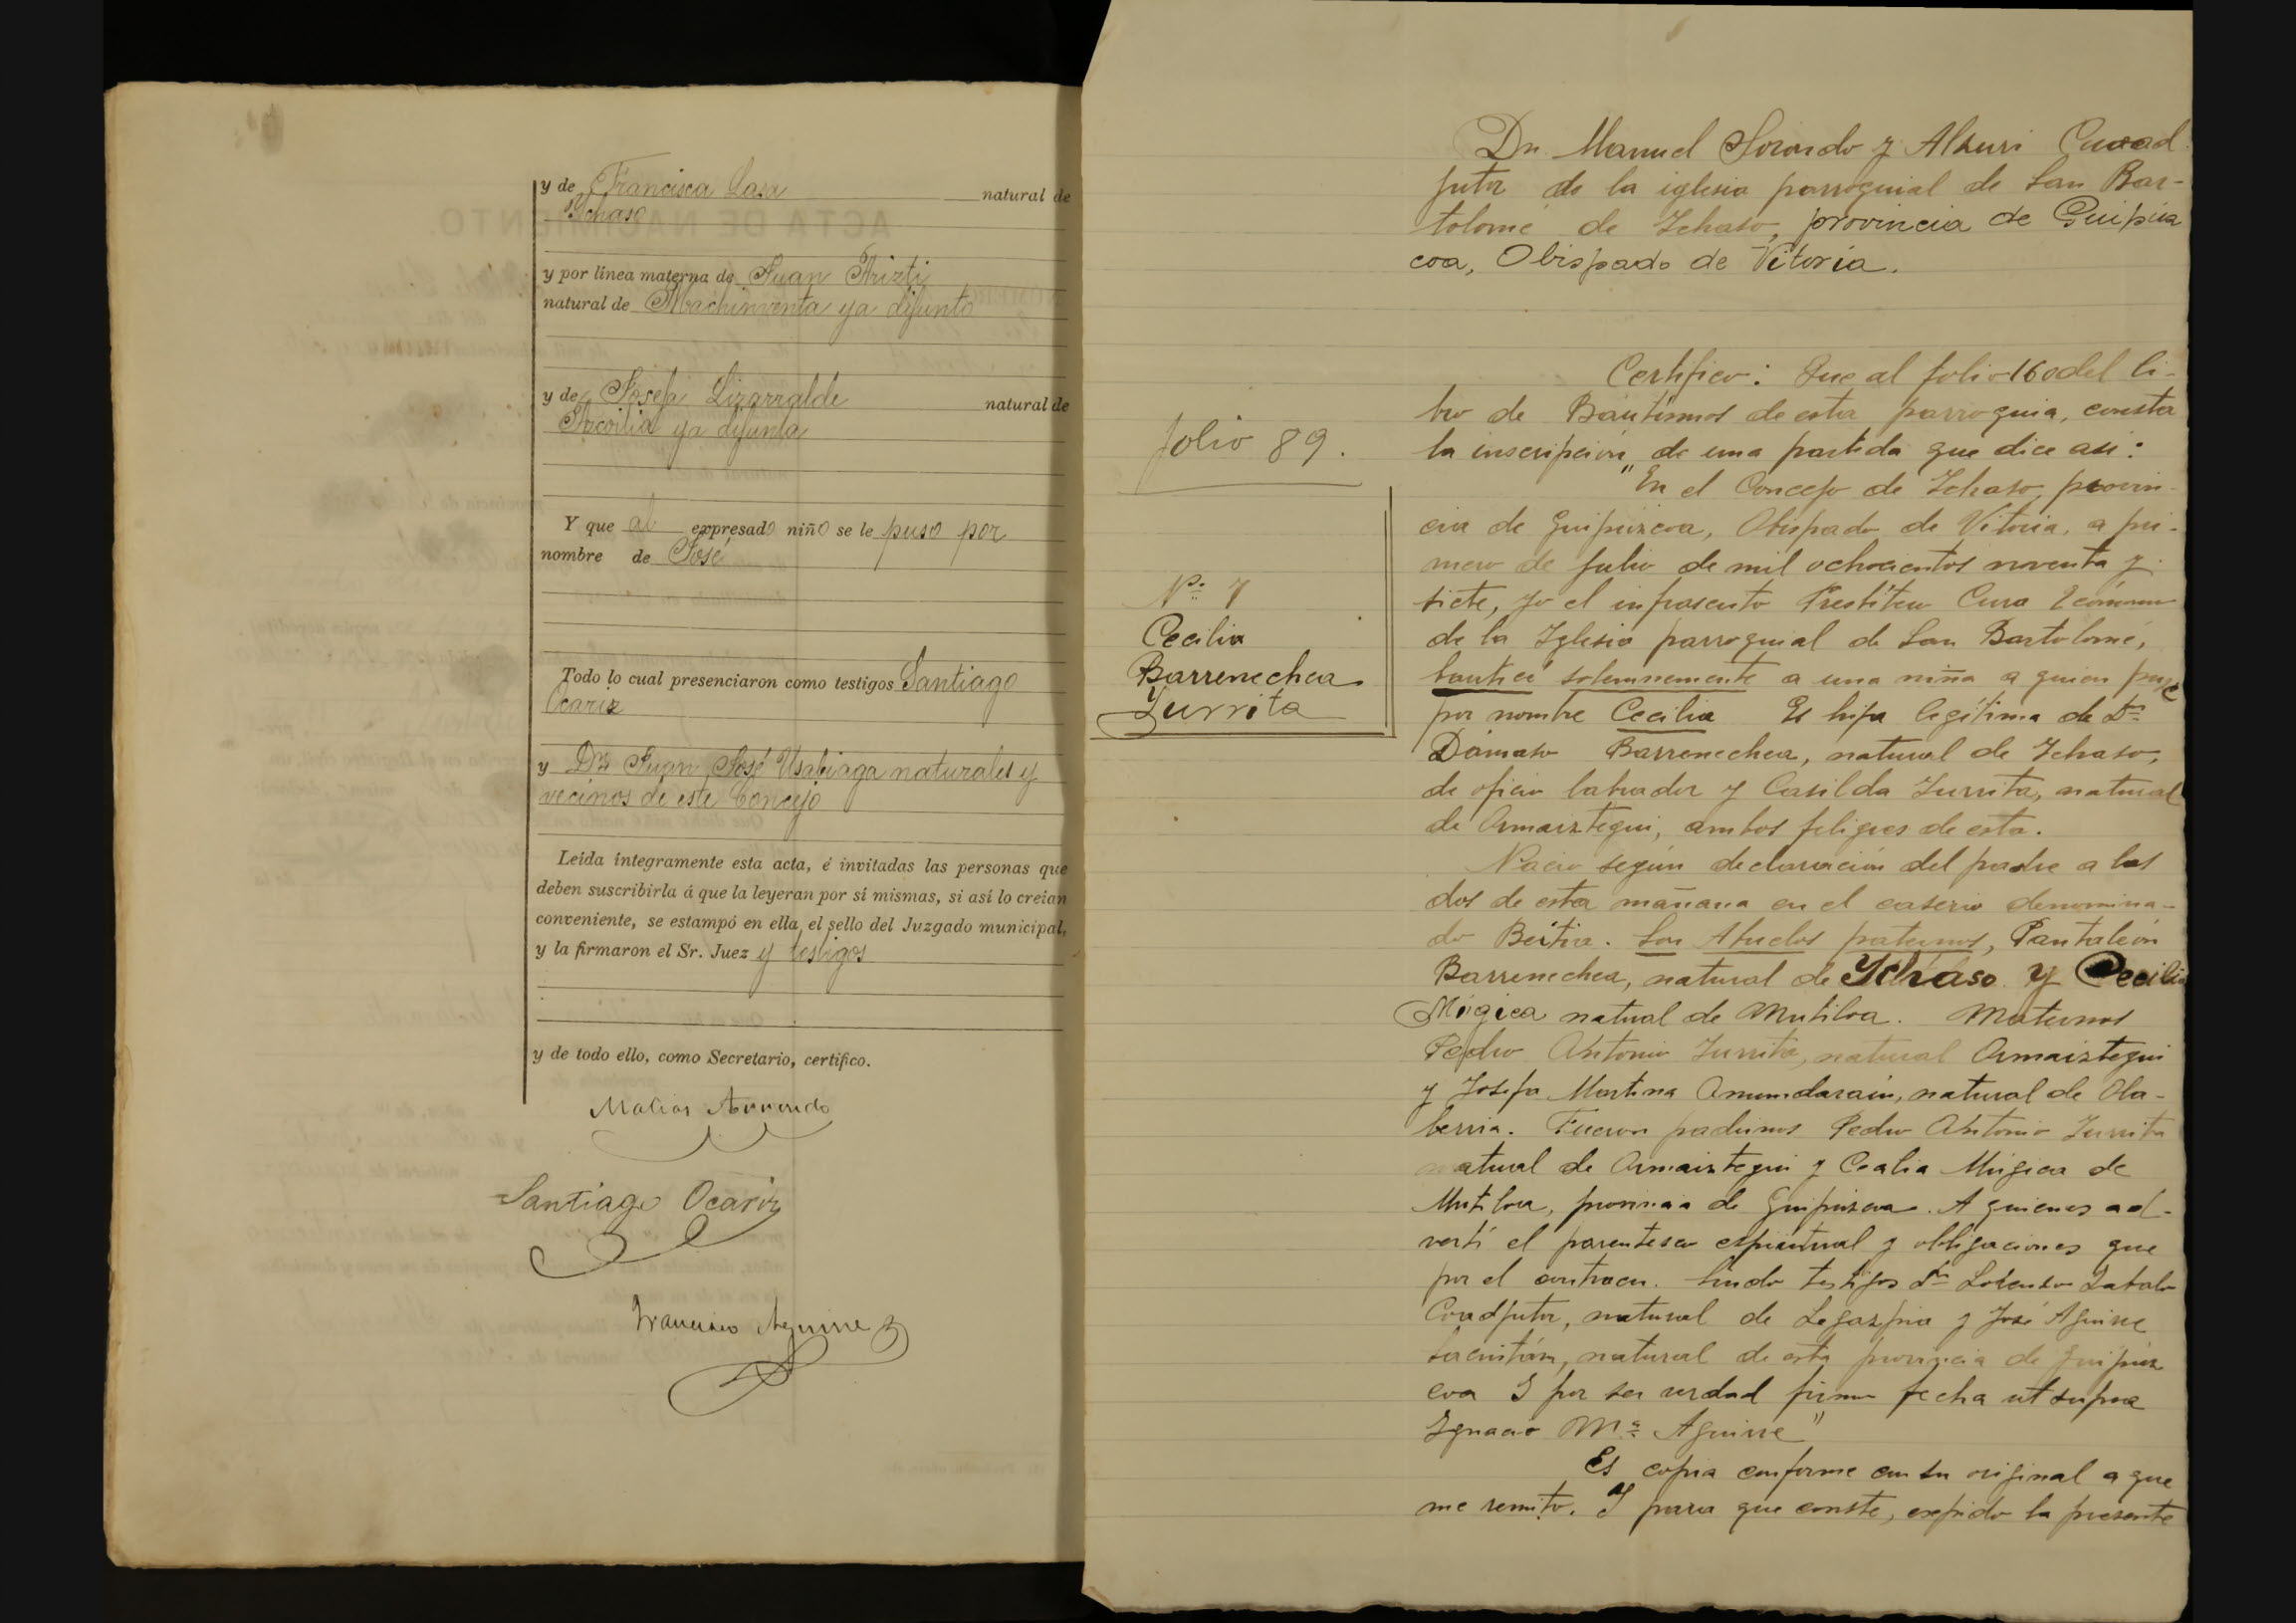 y de Francisca Lasa natural de
Ychaso
y por línea materna de Juan Arizti
natural de Machinventa ya difunto
y de Josefa Lizarralde natural de
Arcoilia ya difunta
Y que al expresado niño se le puso por
nombre de José
Todo lo cual presenciaron como testigos Santiago
Ocariz
y Dn Juan José Usabiaga naturales y
vecinos de este Concejo
Leída íntegramente esta acta, é invitadas las personas que
deben suscribirla á que la leyeran por sí mismas, si así lo creían
conveniente, se estampó en ella el sello del Juzgado municipal,
y la firmaron el Sr. Juez y testigos
y de todo ello, como Secretario, certifico.
Santiago Ocariz
Francisco Aguirre
Dn Manuel Sorondo y Alzuri Coad
jutor de la iglesia parroquial de San Bar-
tolomé de Ichaso, provincia de Guipúz
coa, Obispado de Vitoria.
Certifico: Que al folio 160 del li-
bro de Bautismos de esta parroquia, consta
la inscripción de una partida que dice así:
folio 89.
"En el Concejo de Ichaso, provin-
cia de Guipúzcoa, Obispado de Vitoria, a pri-
mero de julio de mil ochocientos noventa y
siete, yo el infrascrito Presbítero Cura Ecónomo
de la Iglesia parroquial de San Bartolomé,
bauticé solemnemente a una niña a quien puse
por nombre Cecilia Es hija legítima de Dn
Dámaso Barrenechea, natural de Ichaso,
de oficio labrador y Casilda Iurrita, natural
de Ormaiztegui, ambos feligres de esta.
Nº 7
Cecilia
Barrenechea
Iurrita
Nació según declaración del padre a las
dos de esta mañana en el caserio denomina-
do Beitia. Son Abuelos paternos, Pantaleón
Barrenechea, natural de Ychaso y Cecilia
Múgica natual de Mutiloa. Maternos
Pedro Antonio Iurrita, natural Ormaiztegui
y Josefa Martina Amundarain, natural de Ola-
berria. Fueron padrinos Pedro Antonio Iurrita
natural de Ormaiztegui y Cealia Múgica de
Mutiloa, provincia de Guipúzcoa. A quienes ad-
vertí el parentesco espiritual y obligaciones que
por el contraen. Siendo testigos Dn Lorenzo Zabalo
Coadjutor, natural de Legazpia y José Aguirre
Sacristán, natural de esta provincia de Guipúz
coa Y por ser verdad firmo fecha ut supra
Ignacio Mª Aguirre"
Es copia conforme con su original a que
me remito. Y para que conste, expido la presente